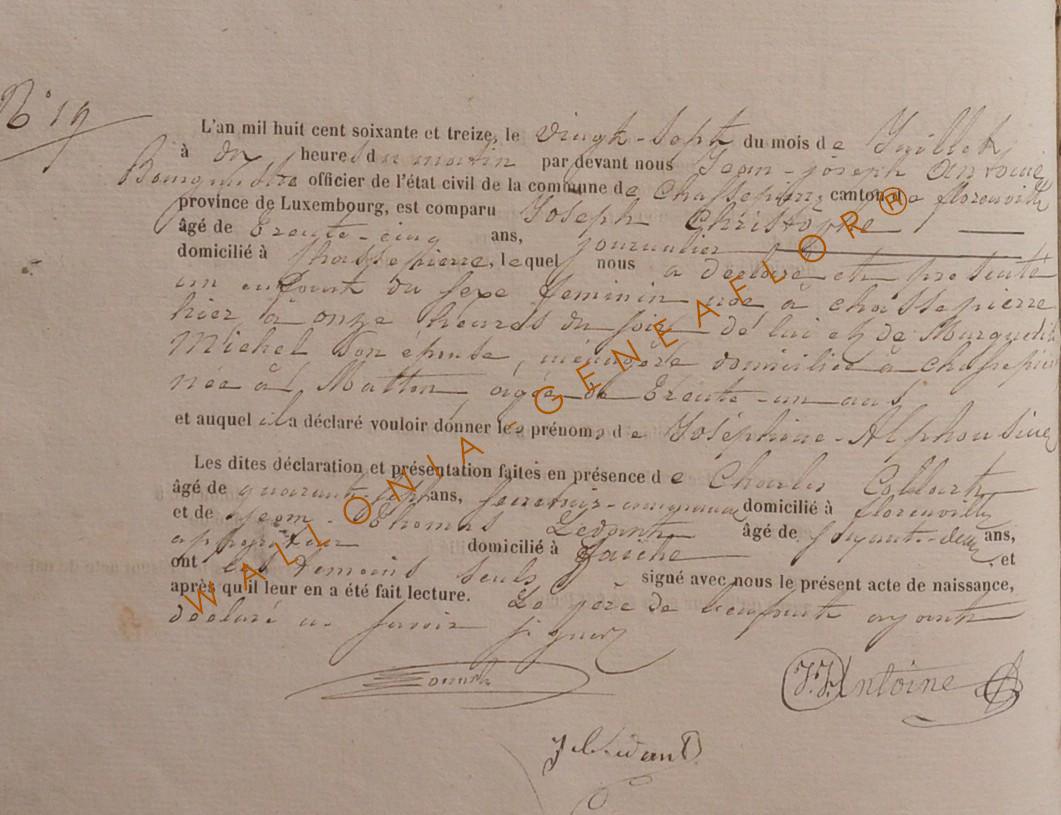 N° 19
L'an mil huit cent soixante et treize, le vingt-sept du mois de Juillet,
à dix heures du matin par devant nous Jean-joseph Antoine
Bourgmestre officier de l'état civil de la commune de Chassepierre, canton de florenville
province de Luxembourg, est comparu Joseph Christophe
âgé de trente-cinq ans, journalier
domicilié à Chassepierre, lequel nous a déclaré et présenté
un enfant du sexe féminin née à chassepierre
hier à onze heures du soir de lui et de Marguerite
Michel son épouse, ménagère domiciliée à chassepierre
née à Matton, âgée de trente-un ans,
et auquel il a déclaré vouloir donner les prénoms de Joséphine-Alphonsine
Les dites déclaration et présentation faites en présence de Charles Collart
âgé de quarante-sept ans, domicilié à florenville
et de Jean-Thomas Ledant âgé de soixante-deux ans,
domicilié à et
ont les témoins seuls signé avec nous le présent acte de naissance,
après qu'il leur en a été fait lecture. Le père de l'enfant ayant
déclaré ne savoir signer
J.J. Antoine
Ledant
WALLONIA-GENEAFLOR®